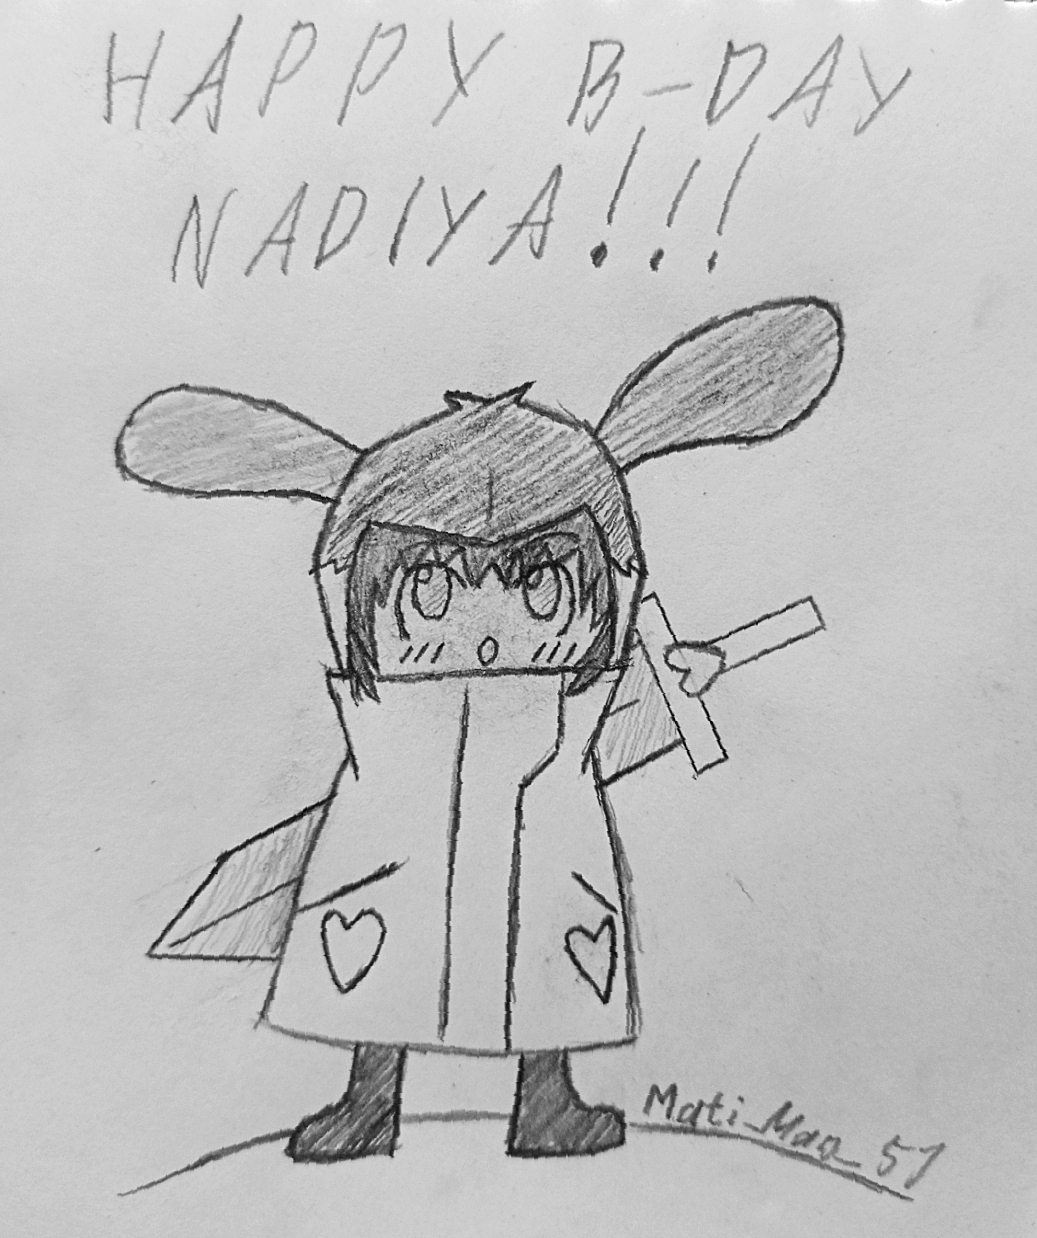 HAPPY B-DAY
NADIYA!!!
Mati_Mao_57